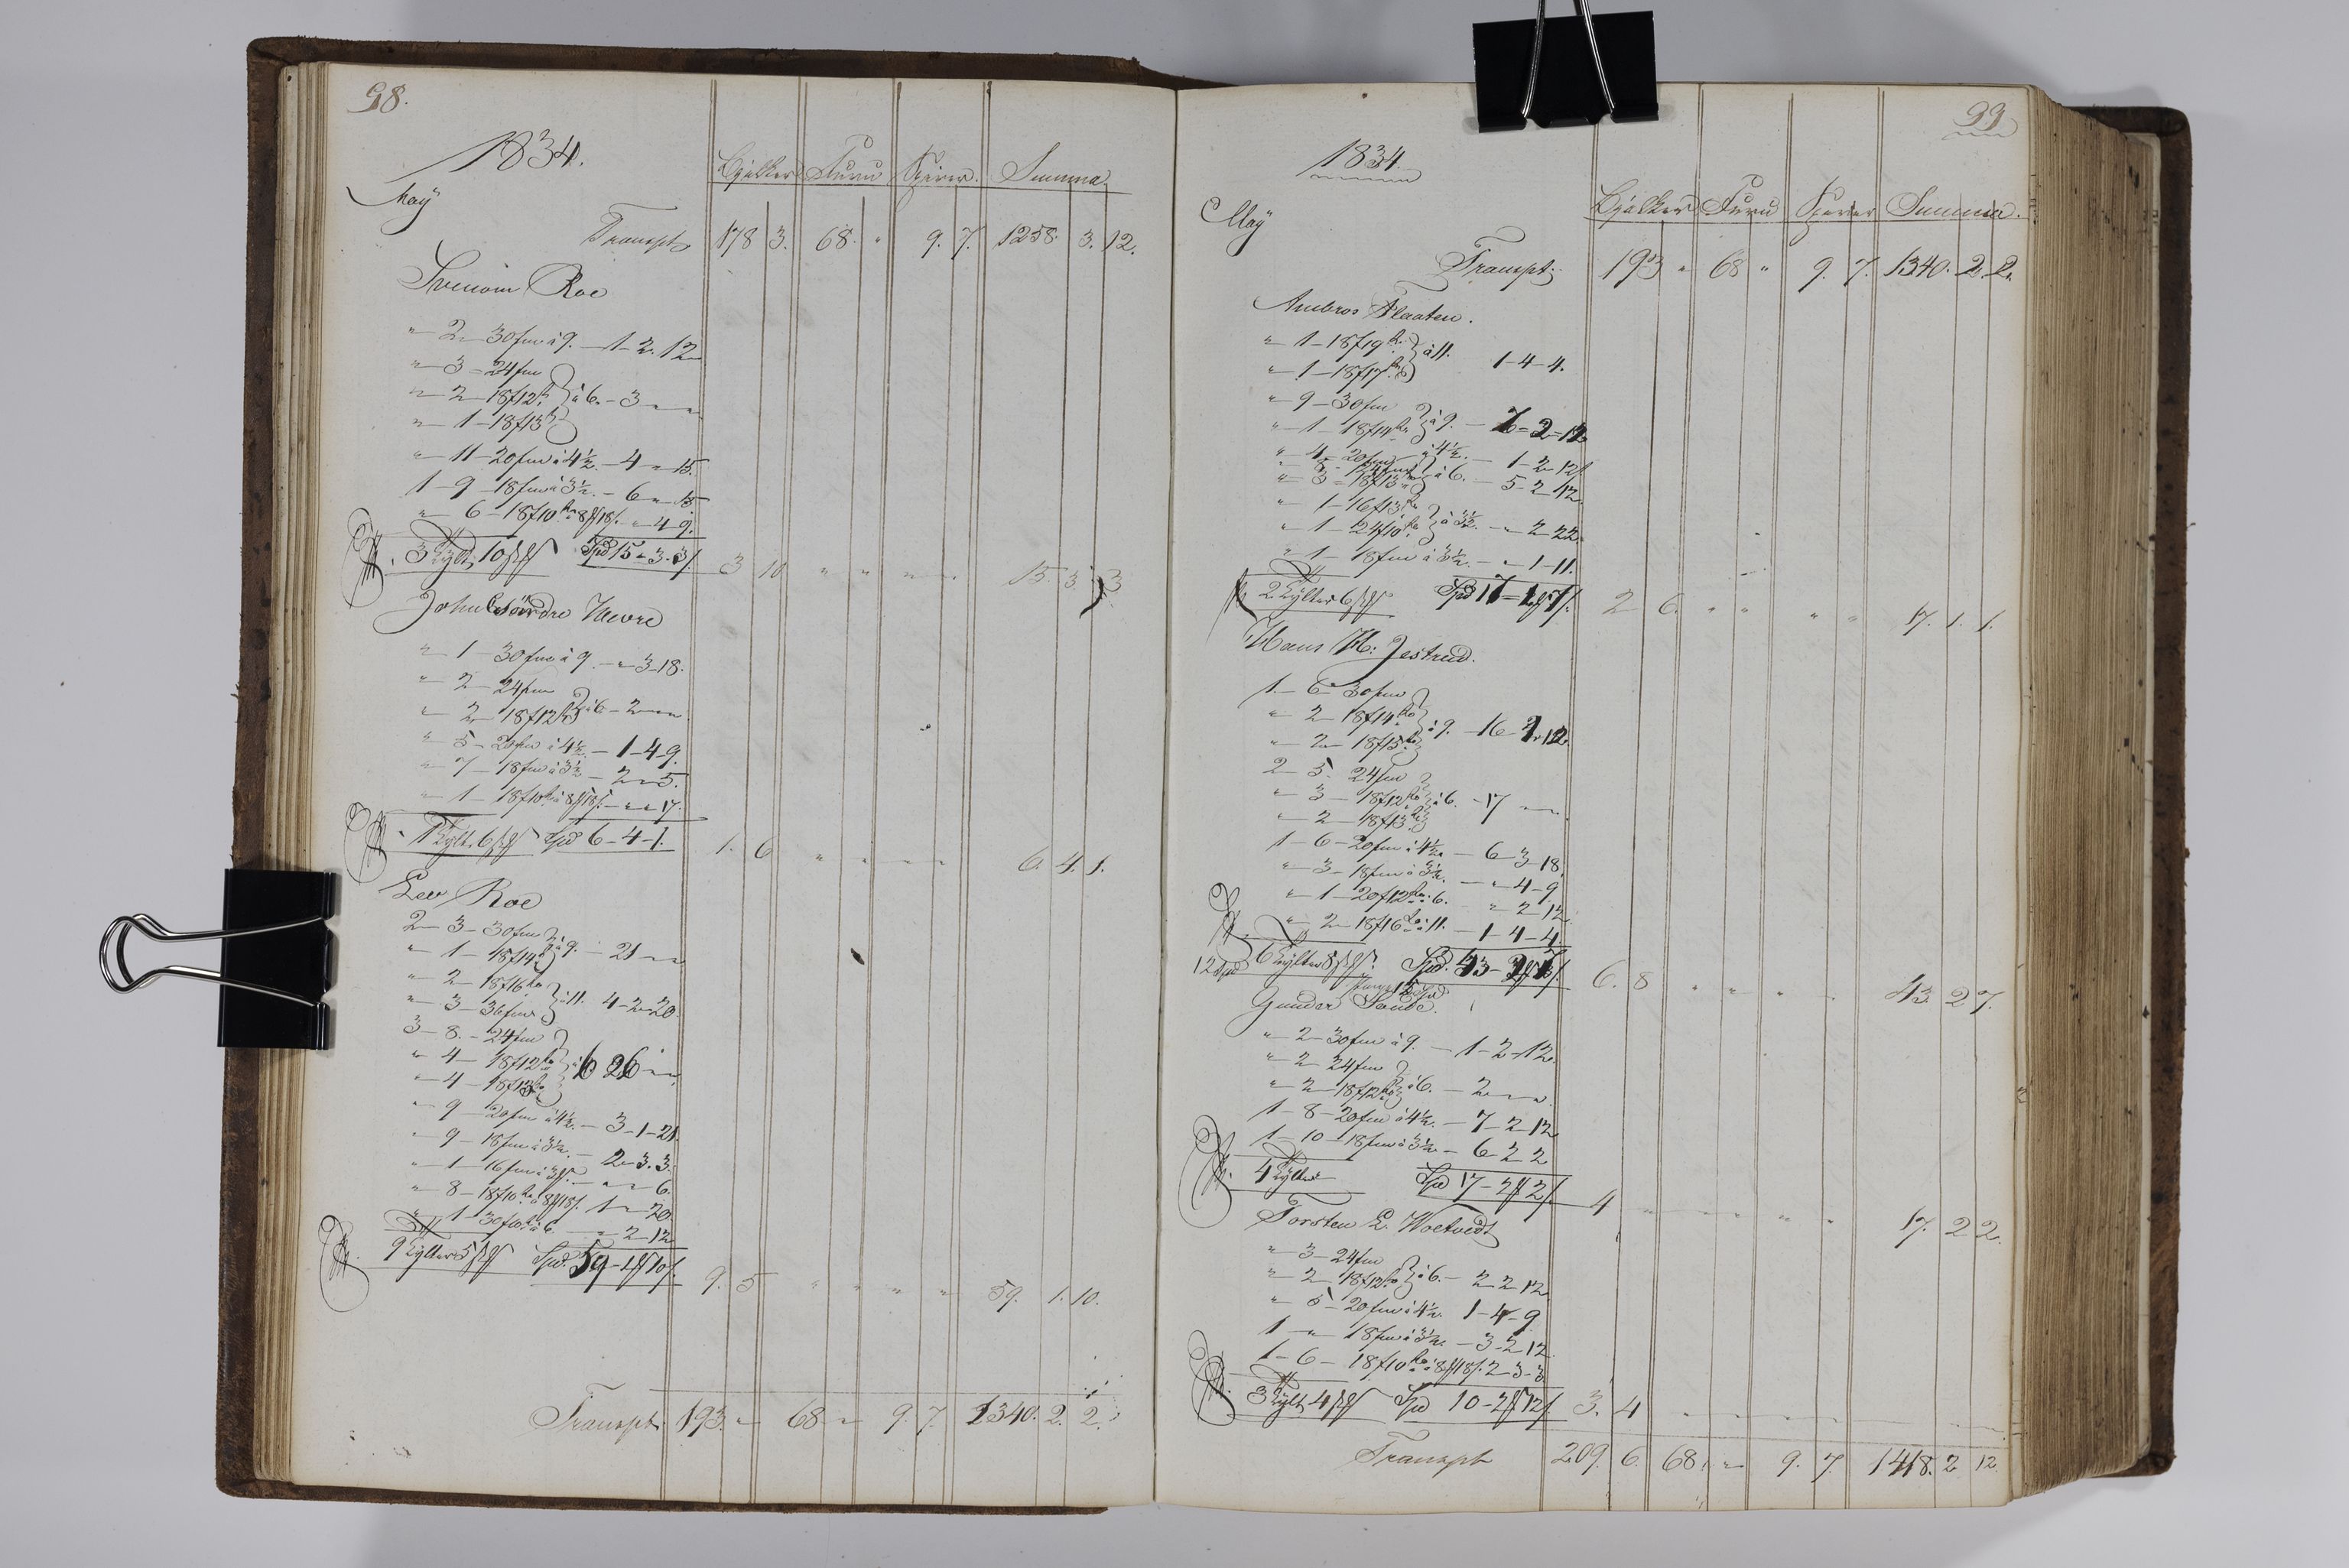 98.
1834.
Bjelker Furu Sperer. Summa.
May
Transpt. 178 3. 68. " 9. 7. 1258. 3. 12.
Roe
" 2 - 30fm à 9. - 1 - 2. 12
" 3 - 24fm
" 2 - 18f12 à 6. - 3 " "
" 1 - 18f13
" 11 - 20fm à 4½. - 4 " 15.
1 - 9 - 18fm à 3½. - 6 " 15.
" 6 - 18f10 " 4 - 9.
3 Tylt. 10 Spd 15 " 3. 3. 3 10 " " " " 15. 3. 3
John Søndre Hevre
" 1 - 30fm à 9. - " 3 - 18.
" 2 - 24fm
" 2 - 18f12 à 6 - 2 " "
" 5 - 20fm à 4½. - 1 - 4 - 9.
" 7 - 18fm à 3½ - 2 " 5.
" 1 - 18f10 - " " 17.
1 Tylt. 6 Spd 6 - 4 - 1. 1. 6 " " " " 6. 4. 1.
Lev Roe
2 - 3 - 30fm
" 1 - 18f14 à 9. - 21 " "
" 2 - 18f16
" 3 - 36fm à 11. 4 - 2 - 20.
3 - 8. - 24fm
" 4 - 18f12 à 6 26 " "
" 4 - 18f13
" 9 - 20fm à 4½. - 3 - 1 - 21.
" 9 - 18fm à 3½. - 2 " 3. 3.
" 1 - 16fm - " " 6.
" 8 - 18f10 1 " 20.
" 1 - 30f10 à 6. " 2 - 12
9 Tylter 5 Spd. 59 - 1 10 9. 5 " " " " 59. 1. 10.
Transpt. 193. " 68 " 9. 7. 1340. 2. 2.
99
1834.
Bjelker Furu Sperer Summa.
May
Transpt. 193 " 68 " 9. 7. 1340. 2. 2.
Ambros Flaaten.
" 1 - 18f19
" 1 - 18f17 à 11. 1 - 4 - 4.
" 9 - 30fm
" 1 - 18f14 à 9. - 7 - 2 - 12
" 4 - 20fm à 4½. - 1 - 2 - 12
" 8 - 24fm
" 3 - 18f13 à 6. - 5 - 2 - 12.
" 1 - 16f13
" 1 - 24f10 à 3½. - " 2 22.
" 1 - 18fm à 3½. - " 1 - 11.
2 Tylter 6 Spd 17 - 1 1 2 6. " " " " 17. 1. 1.
Hans H: Jestrud.
1. - 6 - 30fm
" 2 - 18f14 à 9. - 16 - 2 - 12
" 2 - 18f15
2 - 5. 24fm
" 3 - 18f12 à 6. - 17 " "
" 2 - 18f13
1 - 6 - 20fm à 4½. - 6 - 3 - 18.
" 3 - 18fm à 3½. - " 4 - 9
" 1 - 20f12 à 6. " 2 12
" 2 - 18f16 à 11. - 1 - 4 - 4
6 Tylter 8 Spd. 43 - 2 7 6. 8 " " " " 43 2 7.
12 Spd
Gunder Sande.
" 2 - 30fm à 9. - 1 - 2 - 12.
" 2 - 24fm
" 2 - 18f12 à 6. - 2 " "
1 - 8 - 20fm à 4½. - 7 - 2 12
1 - 10 - 18fm à 3½ - 6 2 2
4 Tylter Spd 17 - 2 2 4 " " " " " 17. 2 2.
Torsten E.
" 3 - 24fm
" 2 - 18f12 à 6. - 2 2 12
" 5 - 20fm à 4½. 1 - 4 - 9
1 " 18fm à 3½ - 3 - 2 12.
1 - 6 - 18f10 2 - 3 - 3.
3 Tylt. 4 Spd 10 - 2 12 3. 4
Transpt 209. 6. 68. " 9. 7. 1418. 2 12.